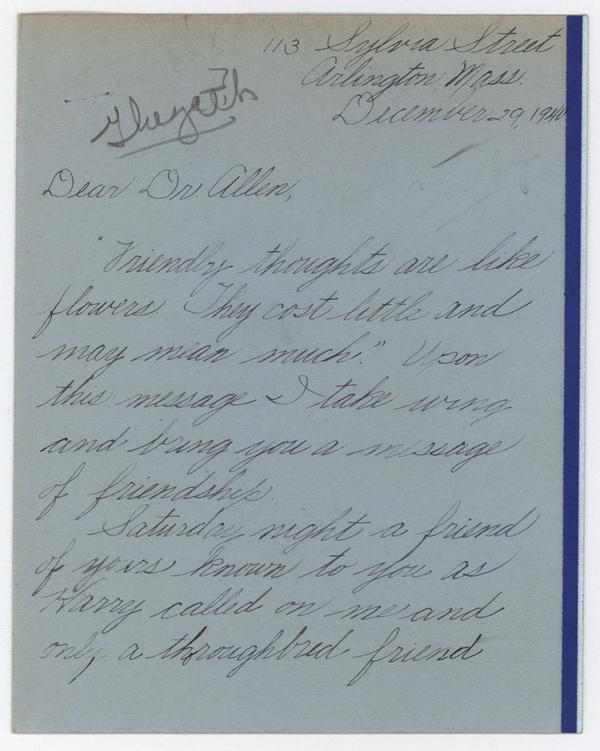 113 Sylvia Street
Arlington, Mass.
December 29, 1940
Dear Dr. Allen,
"Friendly thoughts are like
flowers. They cost little and
may mean much." Upon
this message I take wing
and bring you a message
of friendship.
Saturday night a friend
of yours known to you as
Harry called on me and
only a throughbred friend